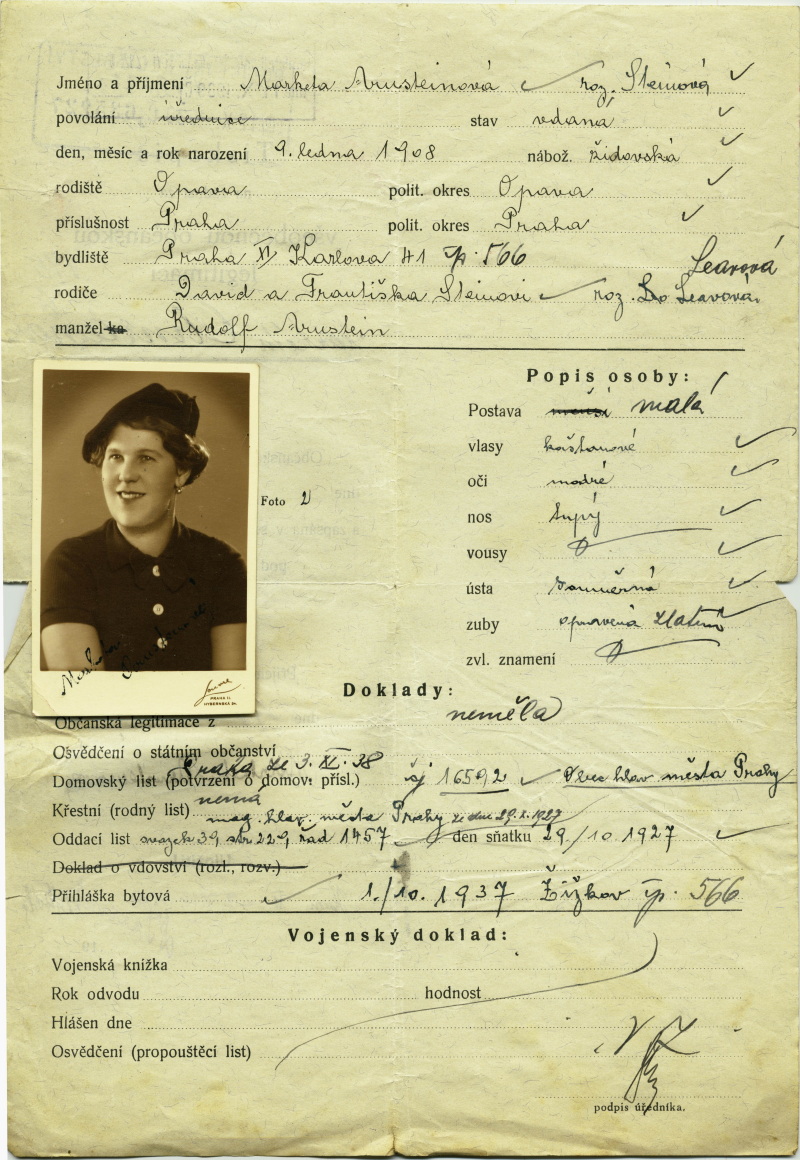 Jméno a příjmení Marketa Arnsteinová roz. Steinová
povolání úřednice stav vdaná
den, měsíc a rok narození 9. ledna 1908 nábož. židovská
rodiště Opava polit. okres Opava
příslušnost Praha polit. okres Praha
bydliště Praha XI Karlova 41 čp. 566
Learová
rodiče David a Františka Steinovi roz. Learová.
manžel-ka Rudolf Arnstein
Popis osoby:
Postava menší malá
vlasy kaštanové
oči modré
nos tupý
vousy
ústa souměrná
zuby opravená zlatem
zvl. znamení
Foto 2
PRAHA II.
HYBERNSKÁ 24.
Doklady:
Občanská legitimace z neměla
Osvědčení o státním občanství
Praha ze 3. XI. 38
Domovský list (potvrzení o domov. přísl.) čj 16592 Obec hlav. města Prahy
Křestní (rodný list) nemá
mag. hlav. města Prahy ze dne 29.X.1927
Oddací list svazek 39, str. 229, řad 1457 den sňatku 29./10. 1927
Doklad o vdovství (rozl., rozv.)
Přihláška bytová 1./10. 1937 Žižkov čp. 566
Vojenský doklad:
Vojenská knížka
Rok odvodu hodnost
Hlášen dne
Osvědčení (propouštěcí list)
podpis úředníka.